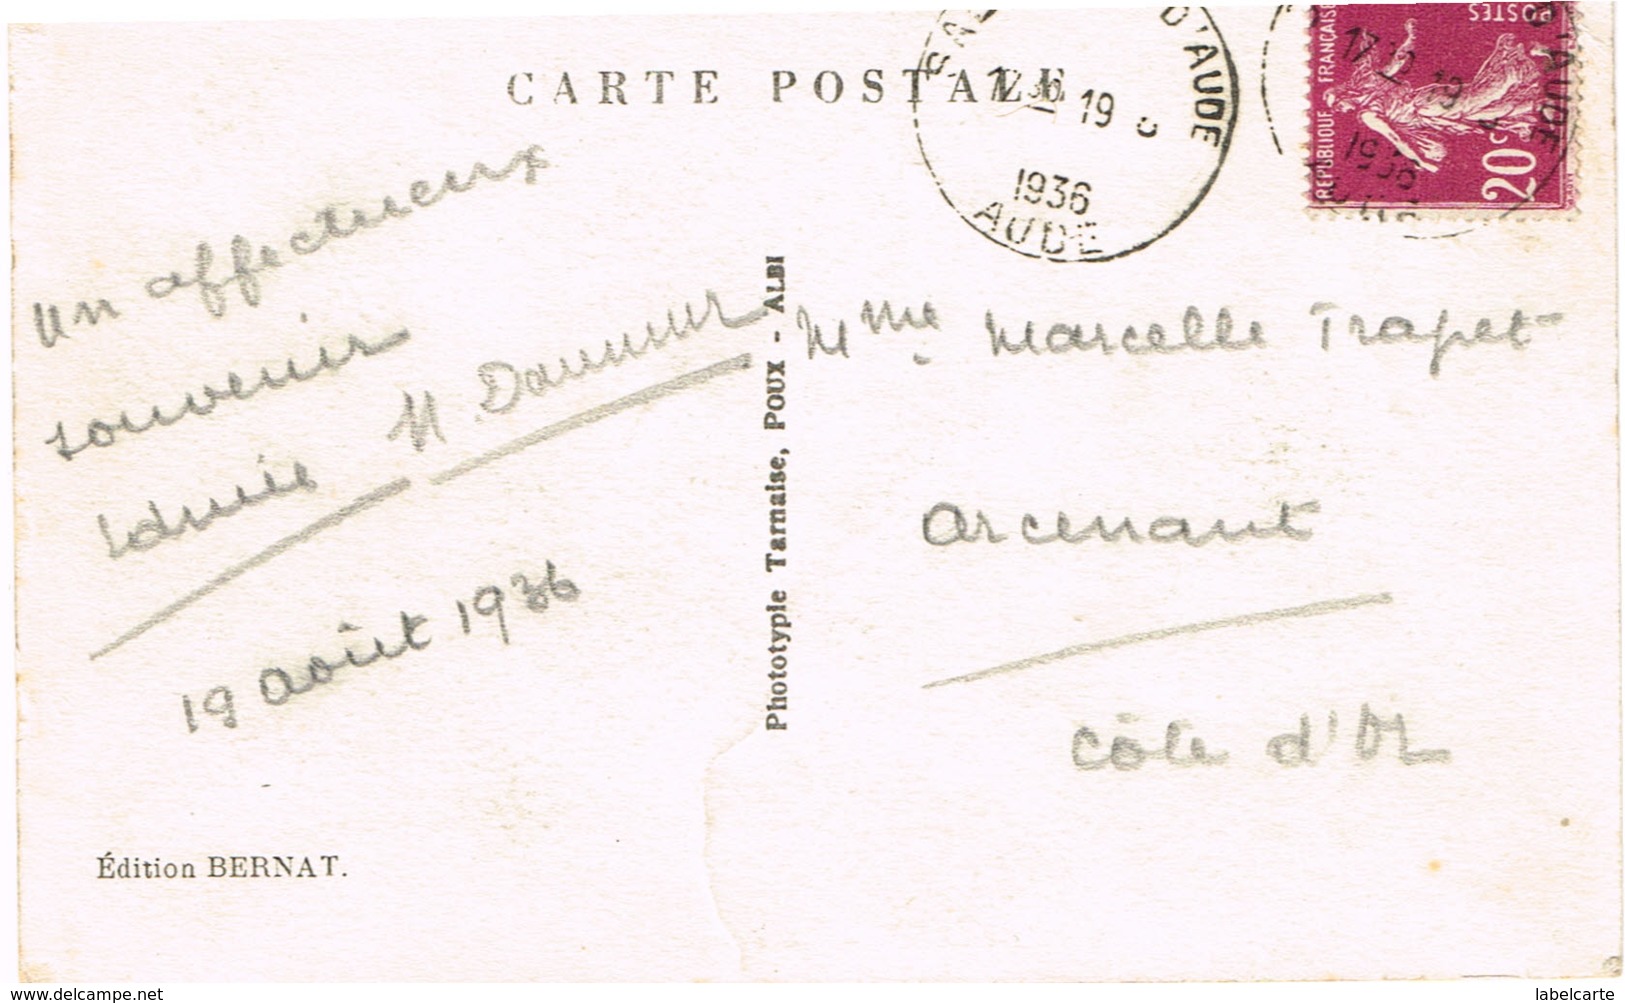 CARTE POSTALE
D'AUDE
17 36
19
1936
AUDE
POSTES
RÉPUBLIQUE FRANÇAISE
20c
D'AUDE
19
1936
un affectueux
souvenir
M.
19 août 1936
Édition BERNAT.
Phototypie Tarnaise, POUX - ALBI
Mme Marcelle Trapet
Arcenant
Côte d'Or
www.delcampe.net
labelcarte